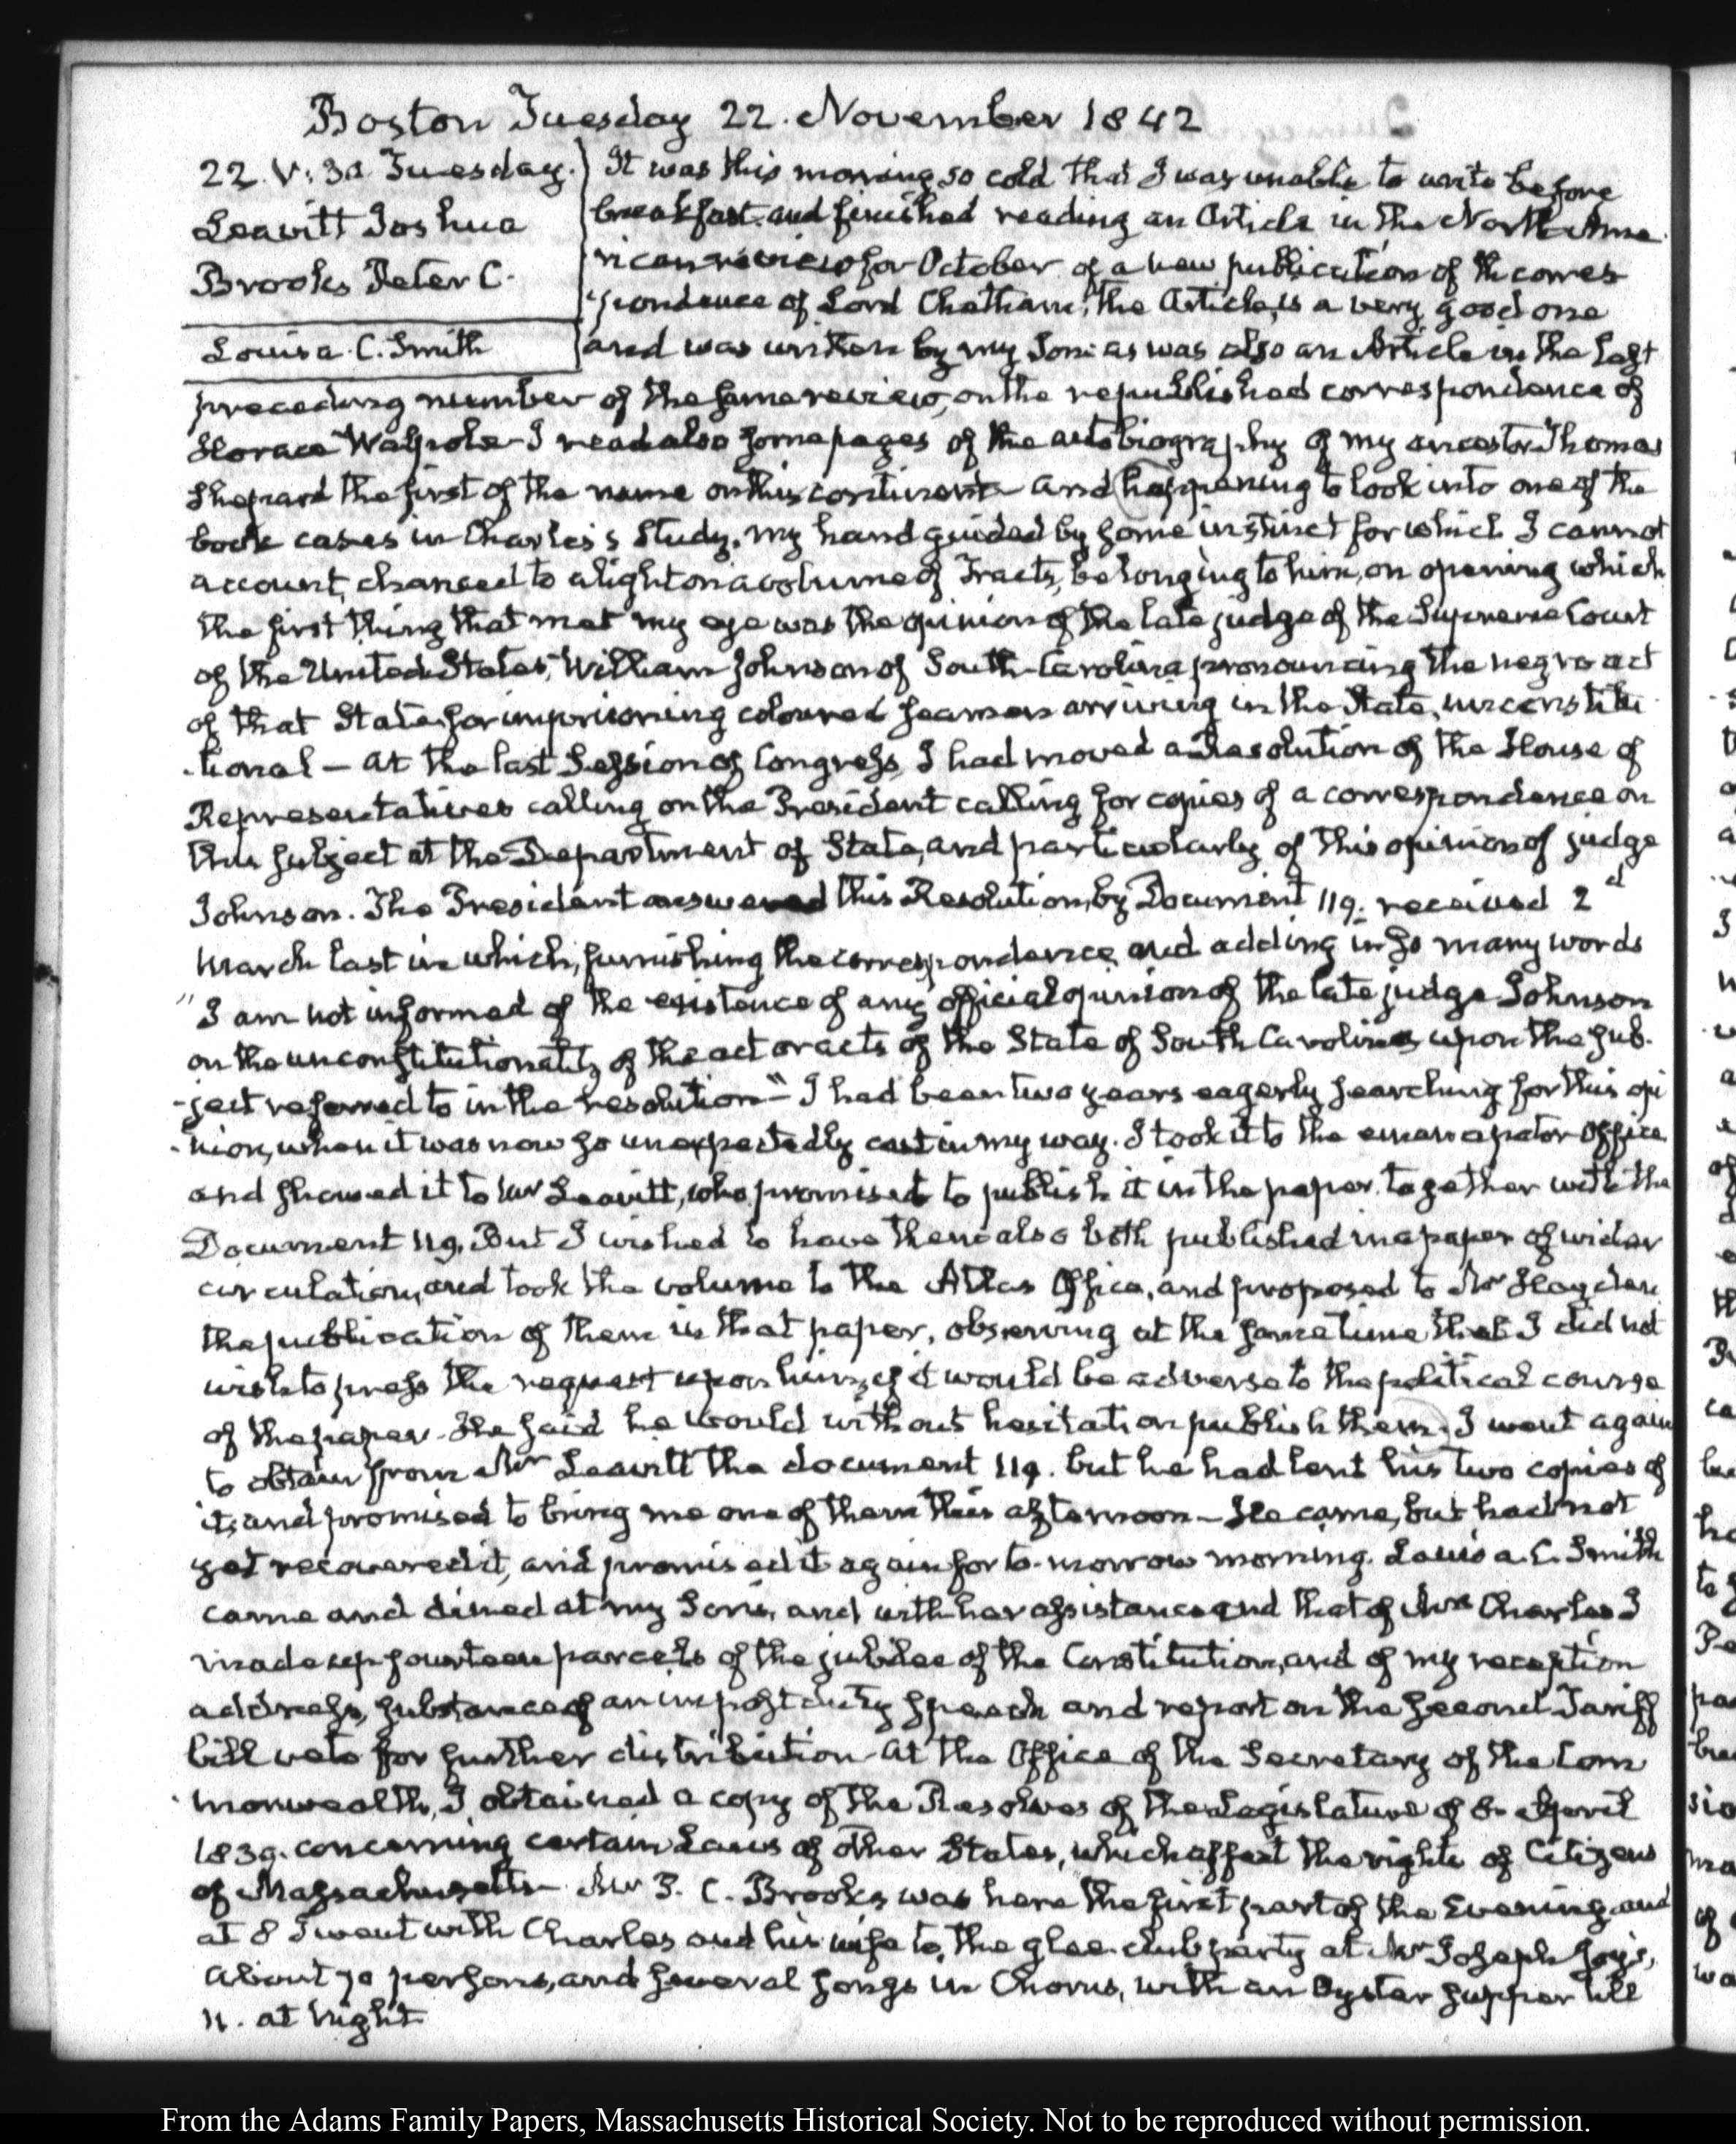 Boston Tuesday 22. November 1842
22. V: 30. Tuesday.
Leavitt Joshua
Brooks Peter C.
Louisa. C. Smith
It was this morning so cold that I was unable to write before
breakfast and finished reading an Article in the North Ame
rican review for October of a new publication of the corres
pondence of Lord Chatham. The Article, is a very good one
and was written by my Son: as was also an Article in the last
preceding number of the same review, on the republished correspondence of
Horace Walpole- I read also some pages of the autobiography of my ancestor Thomas
Shepard the first of the name on this continent- and happening to look into one of the
book cases in Charles's Study, my hand guided by some instinct for which I cannot
account, chanced to alight on a volume of Tracts, belonging to him, on opening which
the first thing that met my eye was the opinion of the late judge of the Supreme Court
of the United States, William Johnson of South-Carolina pronouncing the negro act
of that State for imprisoning coloured seamen arriving in the State, unconstitu
-tional - At the last Session of Congress, I had moved a Resolution of the House of
Representatives calling on the President calling for copies of a correspondence on
this subject at the Department of State, and particularly of this opinion of judge
Johnson. The President answered this Resolution, by Document 119. received 2d
March last in which, furnishing the correspondence, and adding in so many words
"I am not informed of the existence of any official opinion of the late judge Johnson
on the unconstitutionality of the act or acts of the State of South Carolina, upon the sub-
-ject referred to in the resolution-" I had been two years eagerly searching for this opi
-nion, when it was now so unexpectedly cast in my way. I took it to the emancipator Office
and showed it to Mr Leavitt, who promised to publish it in the paper, together with the
Document 119. But I wished to have them also both published in a paper of wider
circulation, and took the volume to the Atlas Office, and proposed to Mr Hayden
the publication of them in that paper, observing at the same time that I did not
wish to press the request upon him, if it would be adverse to the political course
of the paper- He said he would without hesitation publish them. I went again
to obtain from Mr Leavitt the document 119. but he had lent his two copies of
it, and promised to bring me one of them this afternoon - He came, but had not
yet recovered it, and promised it again for to-morrow morning. Louisa. C. Smith
came and dined at my Son's, and with her assistance and that of Mrs Charles I
made up fourteen parcels of the jubilee of the Constitution, and of my reception
address, substance of an impost duty speech and report on the second Tariff
bill veto for further distribution- At the Office of the Secretary of the Com
-monwealth, I obtained a copy of the Resolves of the Legislature of 8. April
1839. concerning certain Laws of other States, which affect the rights of Citizens
of Massachusetts- Mr P. C. Brooks was here the first part of the Evening, and
at 8 I went with Charles and his wife to, the glee-club party at Mr Joseph Joy's,
about 70 persons, and several songs in Chorus, with an Oyster supper till
11. at Night
From the Adams Family Papers, Massachusetts Historical Society. Not to be reproduced without permission.